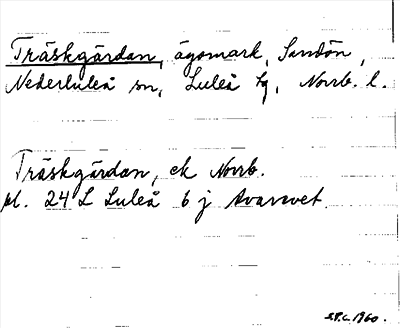 Träskgärdan, ägomark, Sandön,
Nederluleå sn, Luleå tg, Norrb. l.
Träskgärdan, ek Norrb.
pl. 24 L Luleå 6 j Avavavet
1960.